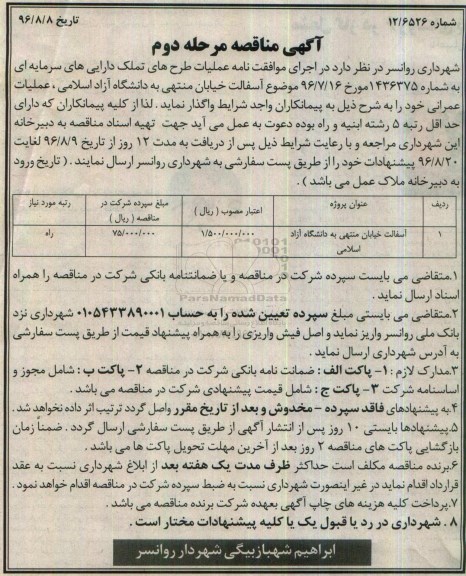 شماره ۱۲/۶۵۲۶
تاریخ ۹۶/۸/۸
آگهی مناقصه مرحله دوم
شهرداری روانسر در نظر دارد در اجرای موافقت نامه عملیات طرح های تملک دارایی های سرمایه ای
به شماره ۱۴۳۶۳۷۵مورخ ۹۶/۷/۱۶ موضوع آسفالت خیابان منتهی به دانشگاه آزاد اسلامی ، عملیات
عمرانی خود را به شرح ذیل به پیمانکاران واجد شرایط واگذار نماید . لذا از کلیه پیمانکاران که دارای
حداقل رتبه ۵ رشته ابنیه و راه بوده دعوت به عمل می آید جهت تهیه اسناد مناقصه به دبیرخانه
این شهرداری مراجعه و با رعایت شرایط ذیل پس از دریافت به مدت ۱۲ روز از تاریخ ۹۶/۸/۹ لغایت
۹۶/۸/۲۰ پیشنهادات خود را از طریق پست سفارشی به شهرداری روانسر ارسال نمایند . ( تاریخ ورود
به دبیرخانه ملاک عمل می باشد ) .
ردیف
عنوان پروژه
اعتبار مصوب ( ریال )
مبلغ سپرده شرکت در مناقصه ( ریال )
رتبه مورد نیاز
۱
آسفالت خیابان منتهی به دانشگاه آزاد اسلامی
۱/۵۰۰/۰۰۰/۰۰۰
۷۵/۰۰۰/۰۰۰
راه
ParsNamadData
۱.متقاضی می بایست سپرده شرکت در مناقصه و یا ضمانتنامه بانکی شرکت در مناقصه را همراه
اسناد ارسال نماید .
۲.متقاضی می بایستی مبلغ سپرده تعیین شده را به حساب ۰۱۰۵۴۳۳۸۹۰۰۰۱ شهرداری نزد
بانک ملی روانسر واریز نماید و اصل فیش واریزی را به همراه پیشنهاد قیمت از طریق پست سفارشی
به آدرس شهرداری ارسال نماید .
۳.مدارک لازم : ۱- پاکت الف : ضمانت نامه بانکی شرکت در مناقصه ۲- پاکت ب : شامل مجوز و
اساسنامه شرکت ۳- پاکت ج : شامل قیمت پیشنهادی شرکت در مناقصه می باشد .
۴.به پیشنهادهای فاقد سپرده - مخدوش و بعد از تاریخ مقرر واصل گردد ترتیب اثر داده نخواهد شد .
۵.پیشنهادها بایستی ۱۰ روز پس از انتشار آگهی از طریق پست سفارشی ارسال گردد . ضمناً زمان
بازگشایی پاکت های مناقصه ۲ روز بعد از آخرین مهلت تحویل پاکت ها می باشد .
۶.برنده مناقصه مکلف است حداکثر ظرف مدت یک هفته بعد از ابلاغ شهرداری نسبت به عقد
قرارداد اقدام نماید در غیر اینصورت شهرداری نسبت به ضبط سپرده شرکت در مناقصه اقدام خواهد نمود .
۷.پرداخت کلیه هزینه های چاپ آگهی بعهده شرکت برنده مناقصه می باشد .
۸ . شهرداری در رد یا قبول یک یا کلیه پیشنهادات مختار است .
ابراهیم شهبازبیگی شهردار روانسر